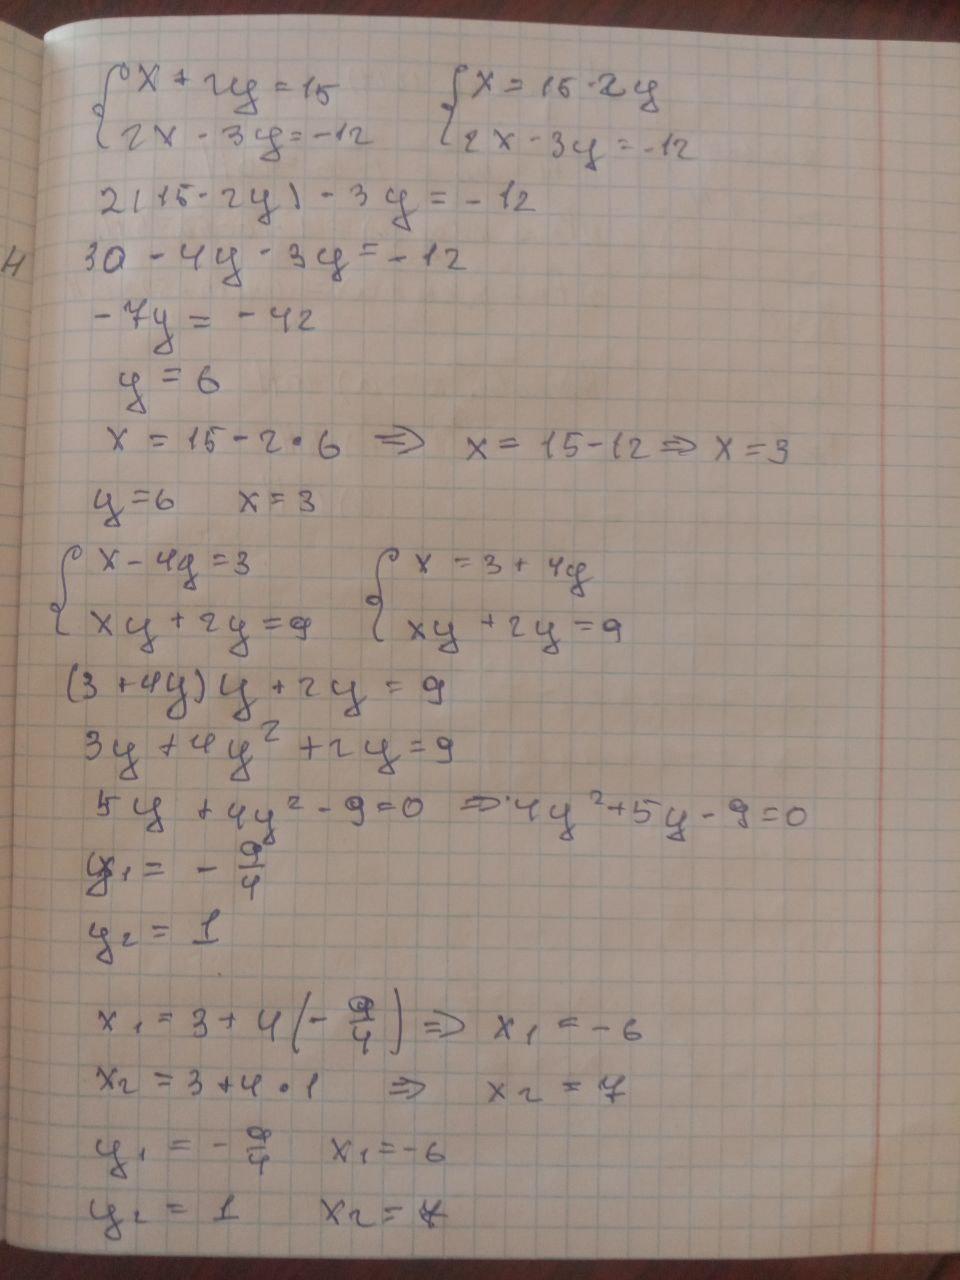 {x + 2y = 15 {x = 15 - 2y
{2x - 3y = -12 {2x - 3y = -12
2(15 - 2y) - 3y = -12
30 - 4y - 3y = -12
-7y = -42
y = 6
x = 15 - 2 • 6 => x = 15 - 12 => x = 3
y = 6 x = 3
{x - 4y = 3 {x = 3 + 4y
{xy + 2y = 9 {xy + 2y = 9
(3 + 4y) y + 2y = 9
3y + 4y² + 2y = 9
5y + 4y² - 9 = 0 => 4y² + 5y - 9 = 0
y₁ = - 9/4
y₂ = 1
x₁ = 3 + 4(- 9/4) => x₁ = -6
x₂ = 3 + 4 • 1 => x₂ = 7
y₁ = - 9/4 x₁ = -6
y₂ = 1 x₂ = 7